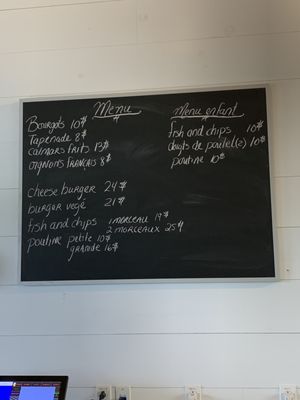 Menu
Bourgots 10$
Tapenade 8$
calmars frits 13$
oignons français 8$
cheese burger 24$
burger végé 21$
fish and chips 1 morceau 19$
2 morceaux 25$
poutine petite 10$
grande 16$
Menu enfant
fish and chips 10$
doigts de poulet(2) 10$
poutine 10$